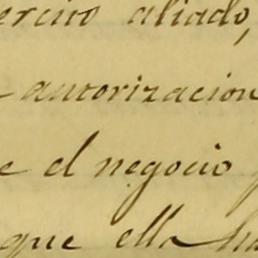 ercito aliado,
autorizacion
e el negocio
que ella ha